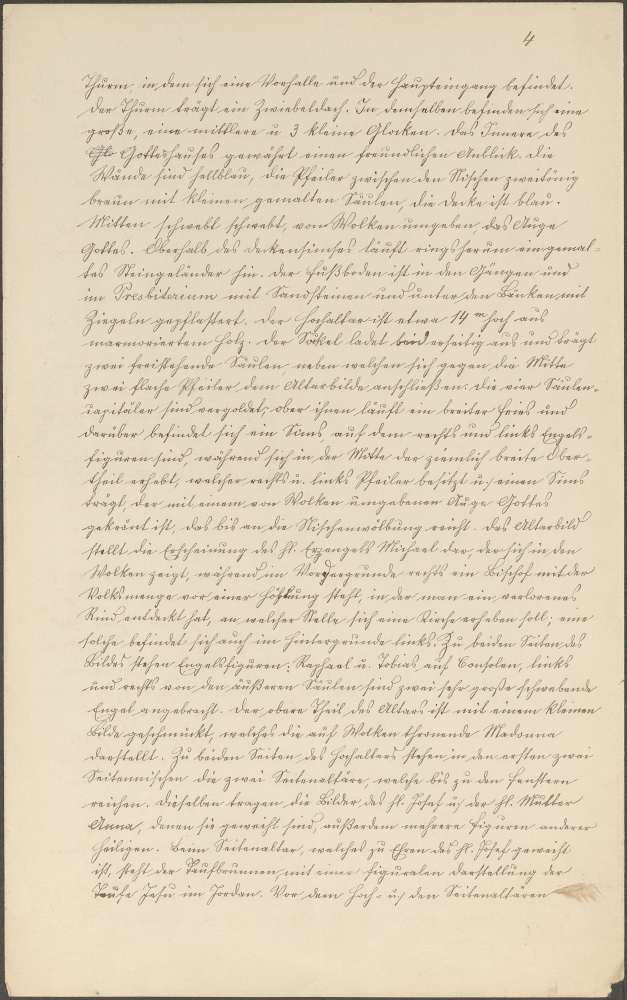 4
Thurm, in dem sich eine Vorhalle und der Haupteingang befindet.
Der Thurm trägt ein Zwiebeldach. In demselben befinden sich eine
große, eine mittlere u 3 kleine Glocken. Das Innere des
Gotteshauses gewährt einen freundlichen Anblick. Die
Wände sind hellblau, die Pfeiler zwischen den Nischen zweitönig
braun mit kleinen gemalten Säulen, die Decke ist blau.
Mitten schwebt schwebt, von Wolken umgeben, das Auge
Gottes. Oberhalb des Deckensimses läuft ringsherum ein gemal-
tes Steingeländer hin. Der Fußboden ist in den Gängen und
im Presbiterium mit Sandsteinen und unter den Bänken mit
Ziegeln gepflastert. Der Hochaltar ist etwa 14 m hoch aus
marmoriertem Holz. Der Sockel ladet beiderseitig aus und trägt
zwei freistehende Säulen, neben welchen sich gegen die Mitte
zwei flache Pfeiler dem Altarbilde anschließen. Die vier Säulen-
capitäler sind vergoldet, ober ihnen läuft ein breiter Fries und
darüber befindet sich ein Sims, auf dem rechts und links Engels-
figuren sind, während sich in der Mitte der ziemlich breite Ober-
theil erhebt, welcher rechts u. links Pfeiler besitzt u. einen Sims
trägt, der mit einem, von Wolken umgebenen Auge Gottes
gekrönt ist, das bis an die Nischenwölbung reicht. Das Altarbild
stellt die Erscheinung des hl. Erzengels Michael dar, der sich in den
Wolken zeigt, während im Vordergrunde rechts ein Bischof mit der
Volksmenge vor einer Höhlung steht, in der man ein verlorenes
Rind entdeckt hat, an welcher Stelle sich eine Kirche erheben soll; eine
solche befindet sich auch im Hintergrunde links. Zu beiden Seiten des
Bildes stehen Engelsfiguren: Raphael u. Tobias auf Consolen, links
und rechts von den äußeren Säulen sind zwei sehr große schwebende
Engel angebracht. Der obere Theil des Altars ist mit einem kleinen
Bilde geschmückt, welches die auf Wolken thronende Madonna
darstellt. Zu beiden Seiten des Hochalters stehen in den ersten zwei
Seitennischen die zwei Seitenaltäre, welche bis zu den Fenstern
reichen. Dieselben tragen die Bilder des hl. Josef u. der hl. Mutter
Anna, denen sie geweiht sind, außerdem mehrere Figuren anderer
Heiligen. Beim Seitenaltar, welches zu Ehren des hl. Josef geweiht
ist, steht der Taufbrunnen mit einer figuralen Darstellung der
Taufe Jesu im Jordan. Vor dem Hoch- u. den Seitenaltären